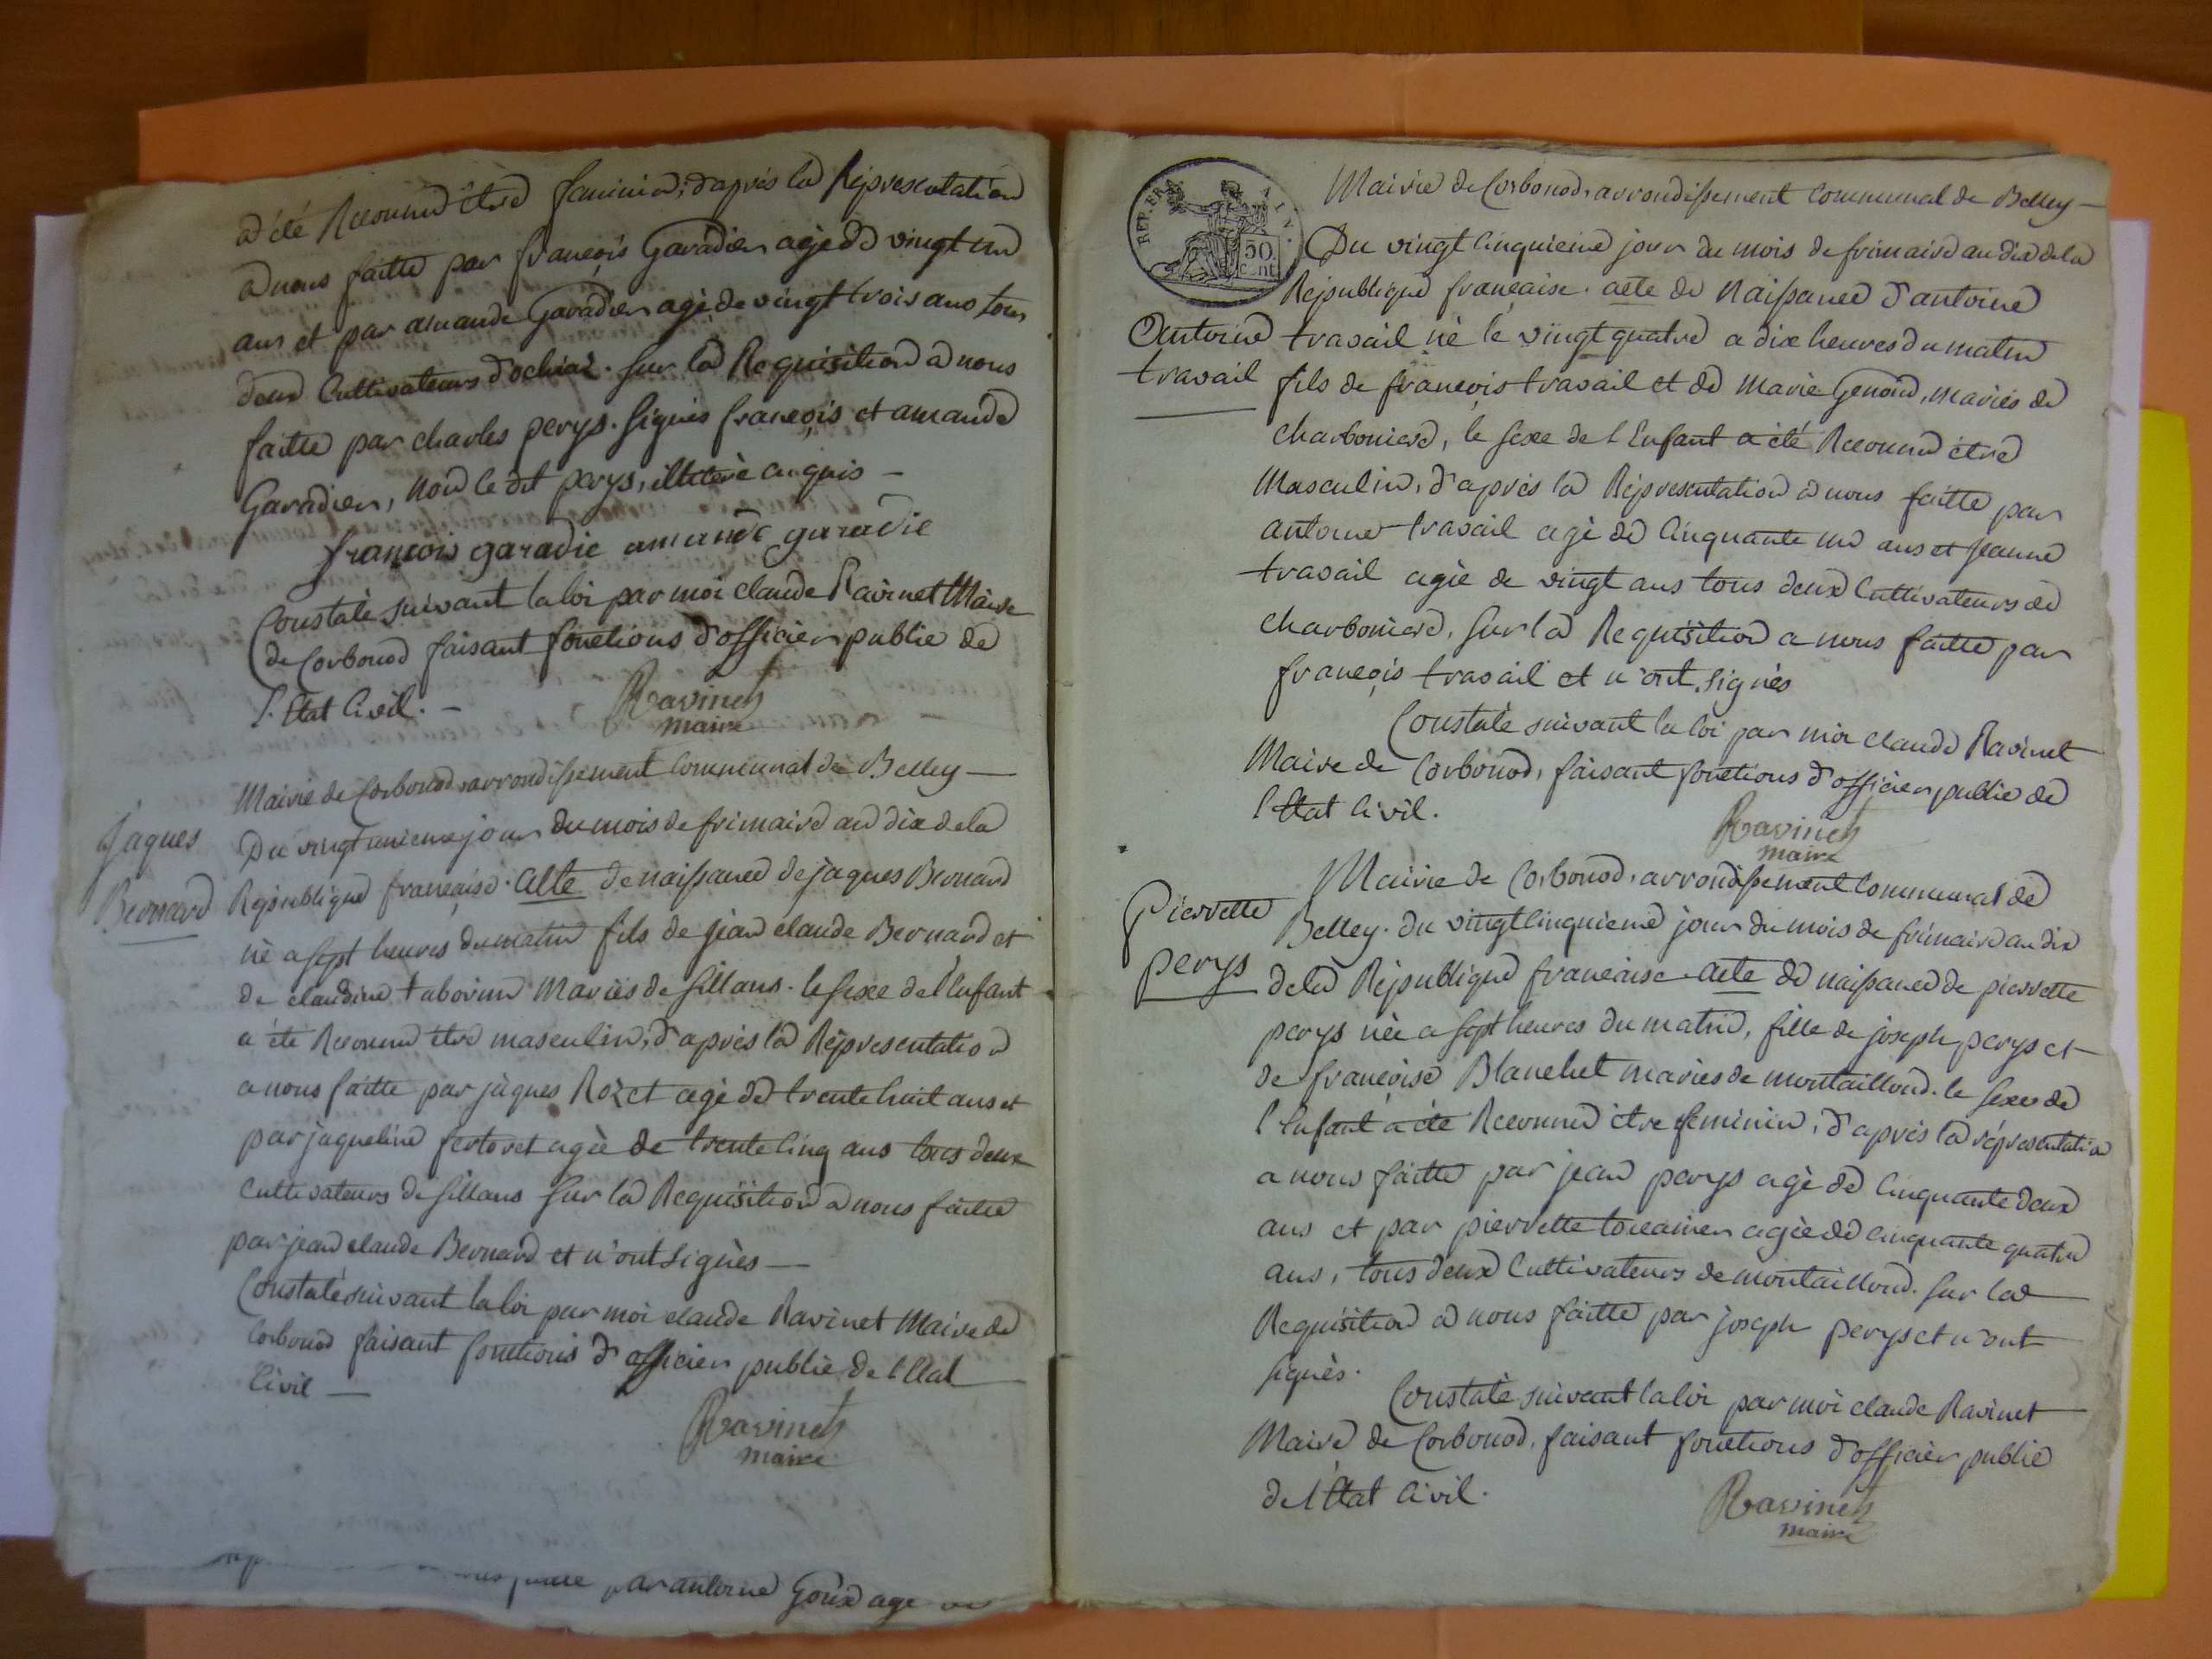 a été Reconnu être feminin; d'après la Répresentation
a nous faitte par françois Gavadier agé de vingt un
ans et par amande Gavadier agé de vingt trois ans tous
deux Cultivateurs d'ochiaz. Sur la Requisition a nous
faitte par charles perys. Signés françois et amande
Gavadier, non le dit perys, illiteré enquis –
françois garadie amande garadie
Constaté suivant la loi par moi claude Ravinet Maire
de Corbonod faisant fonctions d'officier public de
l'Etat Civil. –
Ravinet
maire
Mairie de Corbonod, arrondissement Communal de Belley —
Jaques
Bernard
Du vingt unieme jour du mois de frimaire an dix de la
République française. Acte de naissance de jaques Bernard
né a sept heures du matin fils de jean claude Bernard et
de claudine tabourin Mariés de Sillans. le sexe de l'Enfant
a été Reconnu être masculin, d'après la Répresentation
a nous faitte par jaques Rozet agé de trente huit ans et
par jaqueline fertoret agée de trente Cinq ans tous deux
Cultivateurs de Sillans Sur la Requisition a nous faitte
par jean claude Bernard et n'ont Signés —
Constaté suivant la loi par moi claude Ravinet Maire de
Corbonod faisant fonctions d'officier public de l'Etat
Civil —
Ravinet
maire
par antoine Goux agé
REP. FRA.
50
cent
Mairie de Corbonod, arrondissement Communal de Belley –
Du vingt Cinquieme jour du mois de frimaire an dix de la
République française. acte de Naissance d'antoine
Antoine
travail
travail né le vingt quatre a dix heures du matin
fils de françois travail et de Marie Genoud, mariés de
charboniere, le sexe de l'Enfant a été Reconnu être
Masculin, d'après la Répresentation a nous faitte par
antoine travail agé de Cinquante un ans et jeanne
travail agée de vingt ans tous deux Cultivateurs de
charboniere, Sur la Requisition a nous faitte par
françois travail et n'ont Signés
Constaté suivant la loi par moi claude Ravinet
Maire de Corbonod, faisant fonctions d'officier public de
l'Etat Civil.
Ravinet
maire
Mairie de Corbonod, arrondissement Communal de
Pierrette
perys
Belley. du vingt Cinquieme jour du mois de frimaire an dix
de la République française acte de naissance de pierrette
perys née a sept heures du matin, fille de joseph perys et
de françoise Blanchet mariés de montailloud. le sexe de
l'Enfant a été Reconnu être feminin, d'après la répresentation
a nous faitte par jean perys agé de Cinquante deux
ans et par pierrette tocanier agée de cinquante quatre
ans, tous deux Cultivateurs de montailloud. Sur la
Requisition a nous faitte par joseph perys et n'ont
signés.
Constaté suivant la loi par moi claude Ravinet
Maire de Corbonod, faisant fonctions d'officier public
de l'Etat Civil.
Ravinet
maire